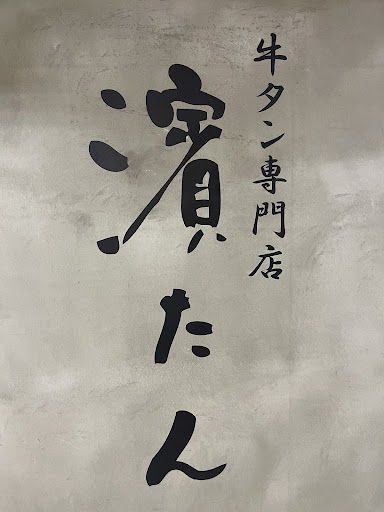 牛タン専門店
濱たん